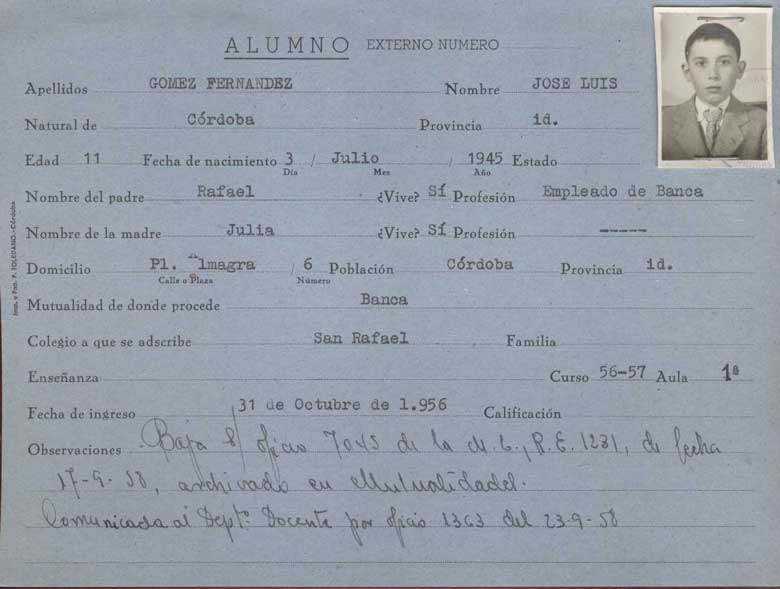 ALUMNO EXTERNO NUMERO
Apellidos GOMEZ FERNANDEZ Nombre JOSE LUIS
Natural de Córdoba Provincia id.
Edad 11 Fecha de nacimiento 3 / Julio / 1945 Estado
Día Mes Año
Nombre del padre Rafael ¿Vive? Sí Profesión Empleado de Banca
Nombre de la madre Julia ¿Vive? Sí Profesión ----
Domicilio Pl. Almagra / 6 Población Córdoba Provincia id.
Calle o Plaza Número
Mutualidad de donde procede Banca
Colegio a que se adscribe San Rafael Familia
Enseñanza Curso 56-57 Aula 1ª
Fecha de ingreso 31 de Octubre de 1.956 Calificación
Observaciones Baja s/ oficio 7045 de la M.L., R.E. 1231, de fecha
17-9-58, archivado en Mutualidades.
Comunicada al Deptº. Docente por oficio 1363 del 23-9-58
Imp. y Pap. F. TOLEDANO.-Córdoba